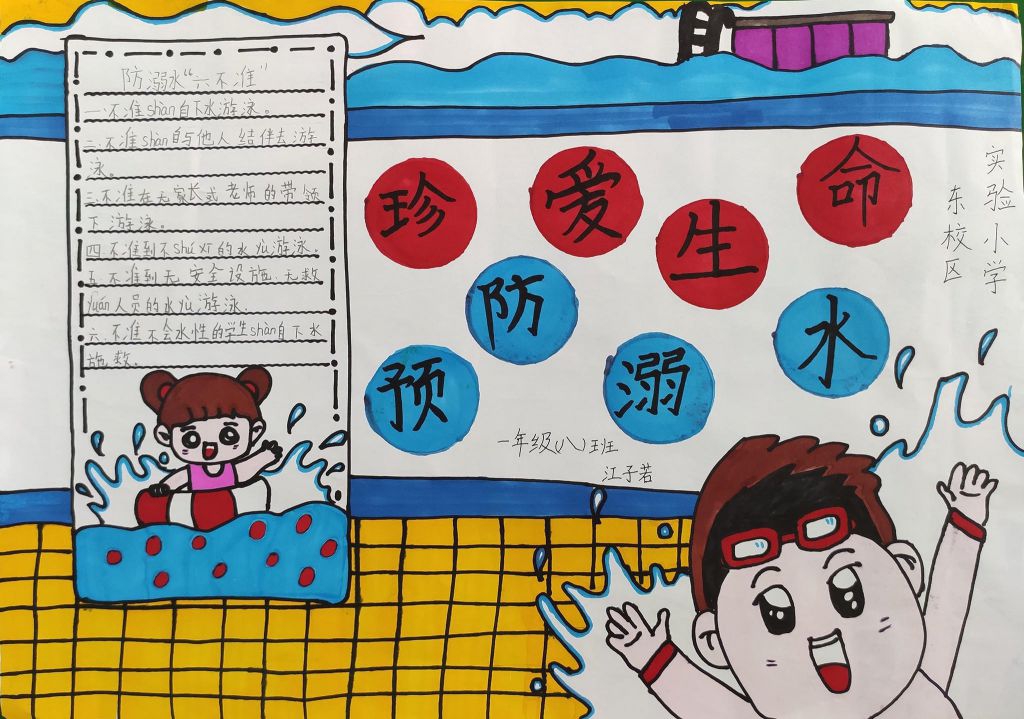 防溺水“六不准”
一.不准shàn自下水游泳。
二.不准shàn自与他人结伴去游
泳。
三.不准在无家长或老师的带领
下游泳。
四.不准到不shú xī的水yù游泳。
五.不准到无安全设施、无救
yuán人员的水yù游泳
六.不准不会水性的学生shàn自下水
施救。
珍爱生命
预防溺水
一年级(八)班
江子若
实验小学
东校区